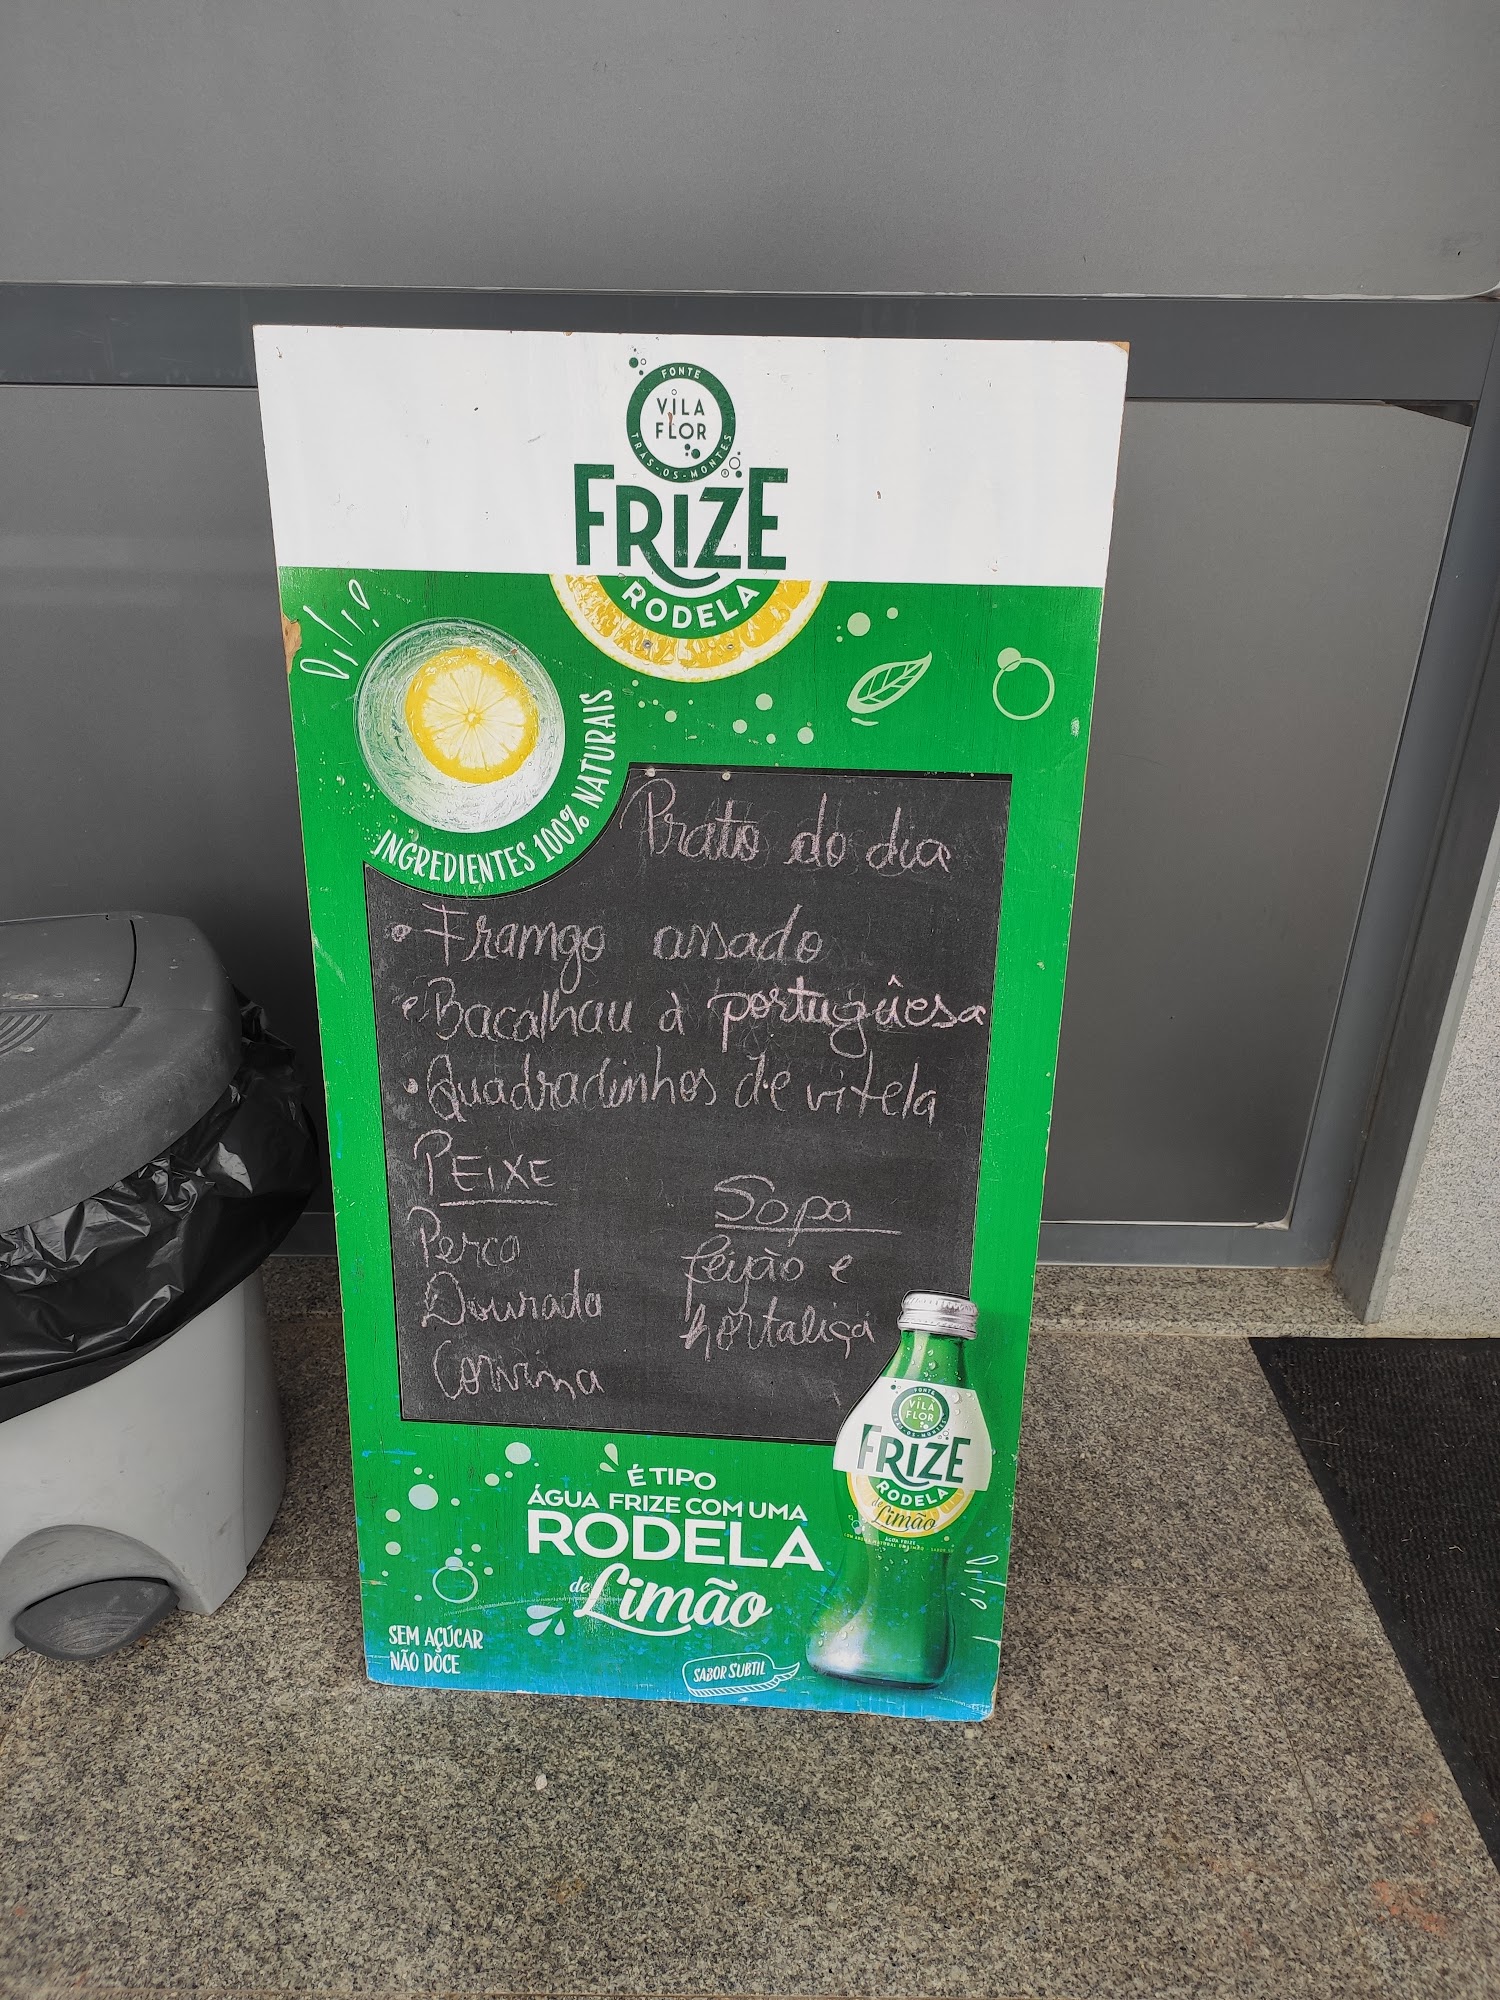 FONTE
VILA
FLOR
TRÁS-OS-MONTES
FRIZE
RODELA
INGREDIENTES 100% NATURAIS
Prato do dia
• Frango assado
• Bacalhau à portuguêsa
• Quadradinhos de vitela
PEIXE
Perca
Dourada
Corvina
Sopa
feijão e
hortaliça
FONTE
VILA
FLOR
TRÁS-OS-MONTES
FRIZE
RODELA
de Limão
ÁGUA FRIZE
É TIPO
ÁGUA FRIZE COM UMA
RODELA
de Limão
SEM AÇÚCAR
NÃO DOCE
SABOR SUBTIL